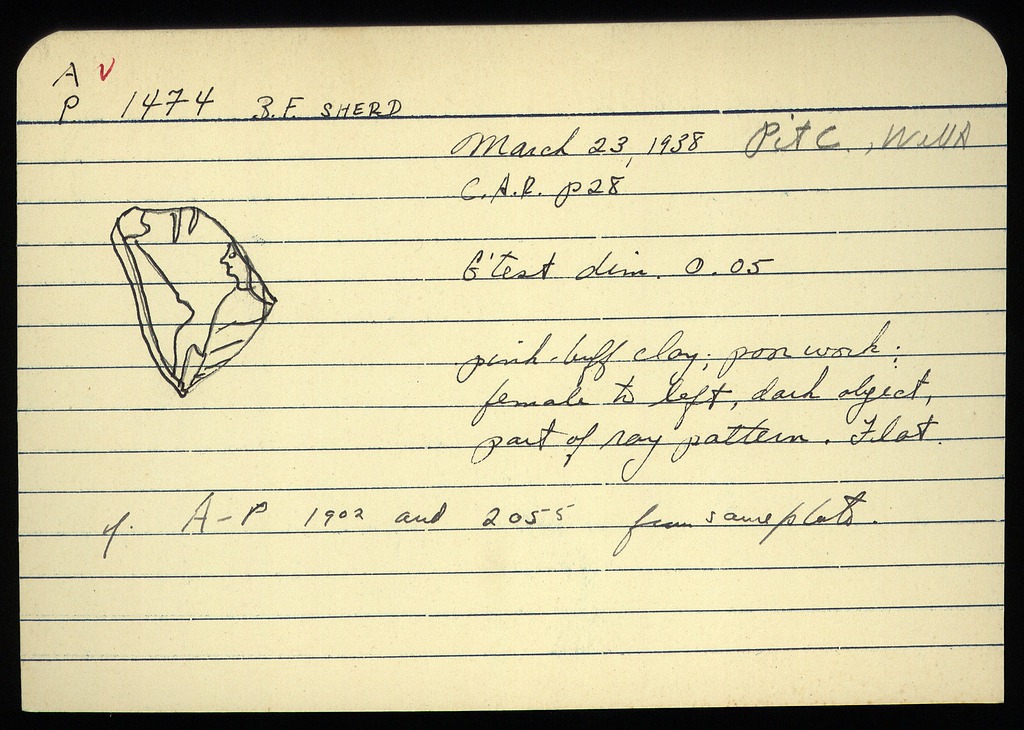 A V
P 1474 B.F. SHERD
March 23, 1938 Pit C., Well A
C.A.R. p28
G'test dim. 0.05
pink-buff clay; poor work;
female to left, dark object,
part of ray pattern. Flat.
cf. A-P 1902 and 2055 from same plate.